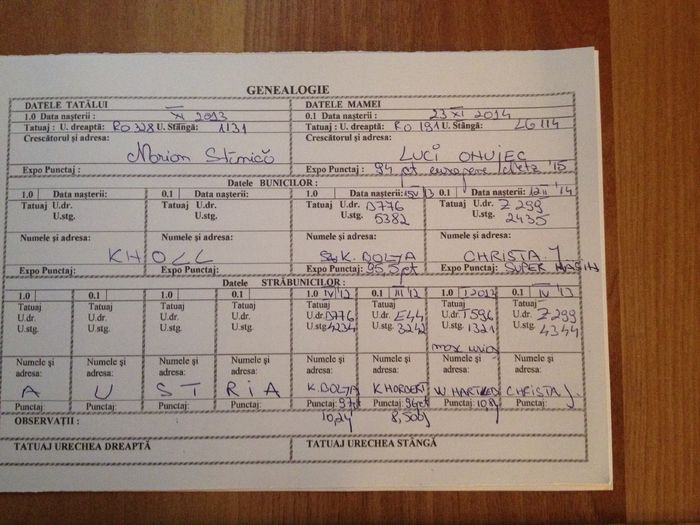 GENEALOGIE
DATELE TATĂLUI
DATELE MAMEI
1.0 Data naşterii: XI 2013
0.1 Data naşterii: 23 XI 2014
Tatuaj : U. dreaptă: RO 328 U. Stângă: 1131
Tatuaj : U. dreaptă: RO 191 U. Stângă: LG 114
Crescătorul şi adresa:
Crescătorul şi adresa:
Marian Stîmică
LUCI ONUJEC
Expo Punctaj :
Expo Punctaj : 94 pt europene Metz '15
Datele BUNICILOR :
1.0 Data naşterii:
0.1 Data naşterii:
1.0 Data naşterii:
0.1 Data naşterii: 12 II '14
Tatuaj U.dr.
U.stg.
Tatuaj U.dr.
U.stg.
Tatuaj U.dr. D776
U.stg. 5382
Tatuaj U.dr. Z 299
U.stg. 2435
Numele şi adresa:
Numele şi adresa:
Numele şi adresa:
Numele şi adresa:
KHOLL
K. DOLYA
CHRISTA. J
Expo Punctaj:
Expo Punctaj:
Expo Punctaj: 95,5 pt
Expo Punctaj: SUPER MAŞIN
Datele STRĂBUNICILOR :
1.0
0.1
1.0
0.1
1.0 IV '12
0.1 III '12
1.0 I 2013
0.1 IV '13
Tatuaj
U.dr.
U.stg.
Tatuaj
U.dr.
U.stg.
Tatuaj
U.dr.
U.stg.
Tatuaj
U.dr.
U.stg.
Tatuaj
U.dr. D776
U.stg. 4234
Tatuaj
U.dr. E44
U.stg. 3242
Tatuaj
U.dr. T596
U.stg. 1321
Tatuaj
U.dr. Z 299
U.stg. 4344
Numele şi
adresa:
Numele şi
adresa:
Numele şi
adresa:
Numele şi
adresa:
Numele şi
adresa:
Numele şi
adresa:
Numele şi
adresa:
Numele şi
adresa:
A U S T R i A
K. DOLYA
K HORBERT
W HARTLIED
CHRISTA J.
Punctaj:
Punctaj:
Punctaj:
Punctaj:
Punctaj: 97 pt
Punctaj: 96 pt
Punctaj:
Punctaj:
OBSERVAŢII :
TATUAJ URECHEA DREAPTĂ
TATUAJ URECHEA STÂNGĂ